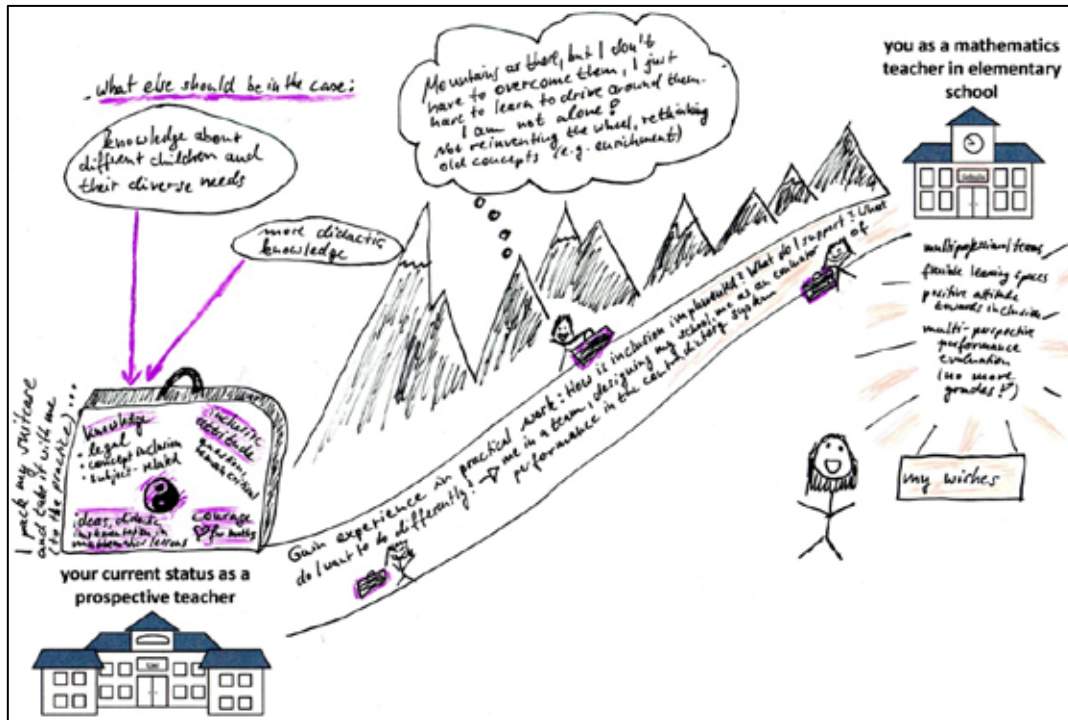 What else should be in the case:
knowledge about
different children and
their diverse needs
more didactic
knowledge
Mountains as there, but I don't
have to overcome them, I just
have to learn to drive around them.
I am not alone!
Not reinventing the wheel, rethinking
old concepts (e.g. enrichment)
you as a mathematics
teacher in elementary
school
multiprofessional teams
flexible learning spaces
positive attitude
towards inclusion
multi-perspective
performance
evaluation
(no more
grades!?)
my wishes
I pack my suitcase
and take it with me
(to the practice)...
knowledge
• legal
• concept inclusion
• subject-related
inclusive
attitude
ideas, didactic
implementation in
mathematics lessons
courage
for maths
Gain experience in practical work: How is inclusion implemented? What do I support? What
do I want to do differently? me in a team, designing my school, me as an evaluator of
performance in the contradictory system
your current status as a
prospective teacher